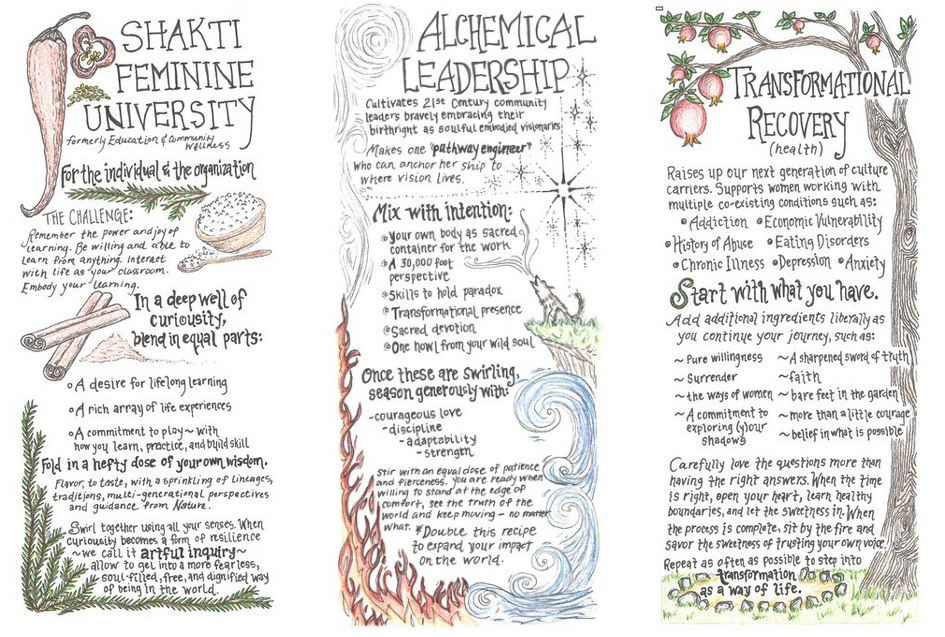 SHAKTI
FEMININE
UNIVERSITY
formerly Education & Community
Wellness
For the individual & the organization
THE CHALLENGE:
Remember the power and joy of
learning. Be willing and able to
learn from anything. Interact
with life as your classroom.
Embody your learning.
In a deep well of
curiosity,
blend in equal parts:
A desire for lifelong learning
A rich array of life experiences
A commitment to play ~ with
how you learn, practice, and build skill
Fold in a hefty dose of your own wisdom.
Flavor, to taste, with a sprinkling of lineages,
traditions, multi-generational perspectives
and guidance from Nature.
Swirl together using all your senses. When
curiosity becomes a form of resilience
~ we call it artful inquiry ~
allow to gel into a more fearless,
soul-filled, free, and dignified way
of being in the world.
ALCHEMICAL
LEADERSHIP
Cultivates 21st Century community
leaders bravely embracing their
birthright as soulful embodied visionaries
Makes one "pathway engineer"
who can anchor her ship to
where vision lives.
Mix with intention:
Your own body as sacred
container for the work
A 30,000 foot
perspective
Skills to hold paradox
Transformational presence
Sacred devotion
One howl from your wild soul
Once these are swirling,
season generously with:
-courageous love
-discipline
-adaptability
-strength
Stir with an equal dose of patience
and fierceness. You are ready when
willing to stand at the edge of
comfort, see the truth of the
world and keep moving - no matter
what. *Double this recipe
to expand your impact
on the world.
TRANSFORMATIONAL
RECOVERY
(health)
Raises up our next generation of culture
carriers. Supports women working with
multiple co-existing conditions such as:
• Addiction • Economic Vulnerability
• History of Abuse • Eating Disorders
• Chronic Illness • Depression • Anxiety
Start with what you have.
Add additional ingredients liberally as
you continue your journey, such as:
~ Pure willingness
~ Surrender
~ the ways of women
~ A commitment to
exploring (y)our
shadows
~ A sharpened sword of truth
~ faith
~ bare feet in the garden
~ more than a little courage
~ belief in what is possible
Carefully love the questions more than
having the right answers. When the time
is right, open your heart, learn healthy
boundaries, and let the sweetness in. When
the process is complete, sit by the fire and
savor the sweetness of trusting your own voice.
Repeat as often as possible to step into
transformation
as a way of life.